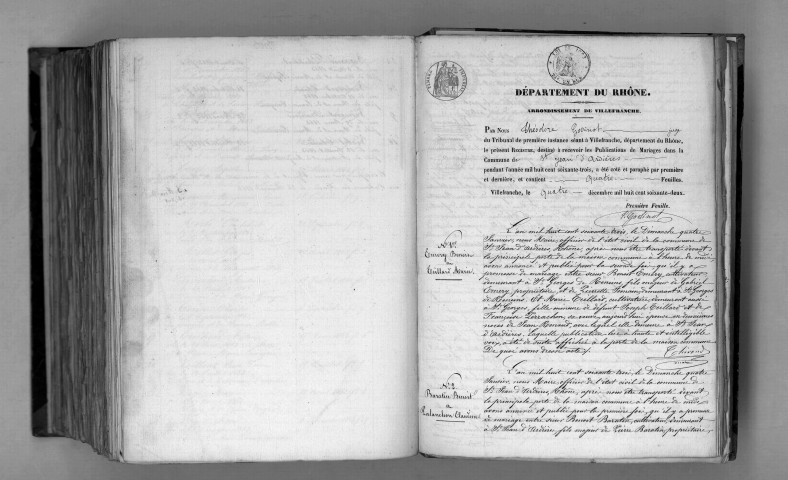 DÉPARTEMENT DU RHÔNE.
ARRONDISSEMENT DE VILLEFRANCHE.
PAR NOUS Théodore juge
du Tribunal de première instance séant à Villefranche, département du Rhône,
le présent REGISTRE, destiné à recevoir les Publications de Mariages dans la
Commune de St Jean d'Ardières
pendant l'année mil huit cent soixante-trois, a été coté et paraphé par première
et dernière, et contient quatre Feuilles.
Villefranche, le quatre décembre mil huit cent soixante-deux.
Première Feuille.
N° 1er
Emery Benoit
et
Trillard Marie
L'an mil huit cent soixante trois, le Dimanche quatre
Janvier, nous Maire, officier de l'état civil de la commune de
St Jean d'Ardières, Rhône, après nous être transporté devant
la principale porte de la maison commune à l'heure de midi,
avons annoncé et publié pour la seconde fois qu'il y a
promesse de mariage entre sieur Benoit Emery, cultivateur,
demeurant à St Georges de Reneins, fils majeur de Gabriel
Emery, propriétaire, et de demeurant à St Georges
de Reneins, Et Marie Trillard, cultivatrice, demeurant aussi
à St Georges, fille mineure de défunt Joseph Trillard et de
Françoise sa veuve, aujourd'hui épouse en deuxièmes
noces de Jean avec lequel elle demeure à St Jean
d'Ardières. Laquelle publication lue à haute et intelligible
voix, a été de suite affichée à la porte de la maison commune
De quoi avons dressé acte.
N° 2
Baratin Benoit
et
L'an mil huit cent soixante trois, le Dimanche quatre
Janvier, nous Maire, officier de l'état civil de la commune de
St Jean d'Ardières, Rhône, après nous être transporté devant
la principale porte de la maison commune à l'heure de midi,
avons annoncé et publié pour la première fois, qu'il y a promesse
de mariage entre sieur Benoit Baratin, cultivateur, demeurant
à St Jean d'Ardières, fils majeur de Pierre Baratin, propriétaire,